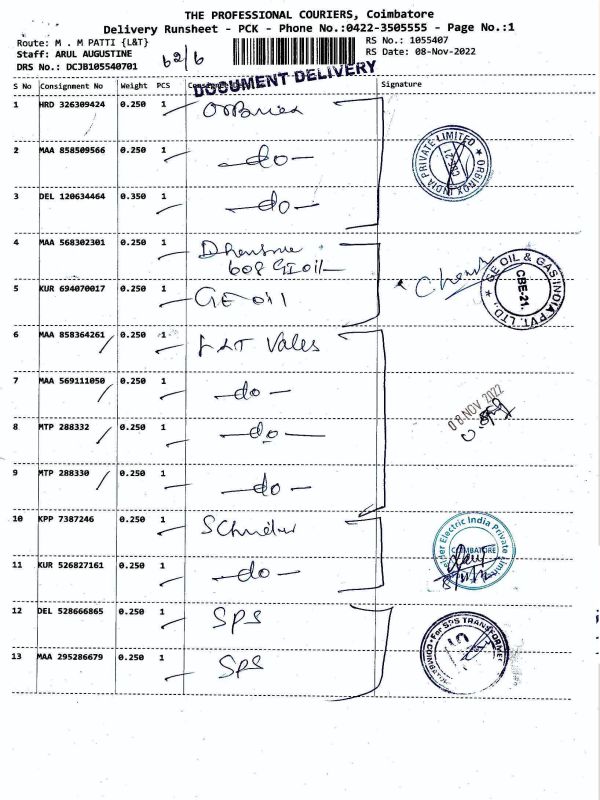 THE PROFESSIONAL COURIERS, Coimbatore
Delivery Runsheet - PCK - Phone No.:0422-3505555 - Page No.:1
Route: M . M PATTI {L&T} RS No.: 1055407
Staff: ARUL AUGUSTINE RS Date: 08-Nov-2022
DRS No.: DCJB105540701 62/6
DOCUMENT DELIVERY
S No Consignment No Weight PCS Signature
1 HRD 326309424 0.250 1
2 MAA 858509566 0.250 1 -do-
ORBINOX INDIA PRIVATE LIMITED
CBE-21
3 DEL 120634464 0.350 1 -do-
4 MAA 568302301 0.250 1
608 GI oil
5 KUR 694070017 0.250 1 GE oil
GE OIL & GAS INDIA PVT. LTD.
CBE-21.
6 MAA 858364261 0.250 1 L&T Vales
7 MAA 569111050 0.250 1 -do-
08 NOV 2022
8 MTP 288332 0.250 1 -do-
9 MTP 288330 0.250 1 -do-
10 KPP 7387246 0.250 1
Electric India Private
COIMBATORE
11 KUR 526827161 0.250 1 -do-
12 DEL 528666865 0.250 1 SPS
For SPS TRANSFORMER
13 MAA 295286679 0.250 1 SPS